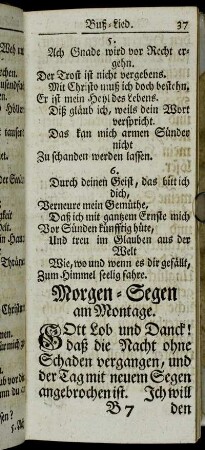 Buß-Lied. 37
5.
Ach Gnade wird vor Recht er-
gehn.
Der Trost ist nicht vergebens.
Mit Christo muß ich doch bestehn,
Er ist mein Heyl des Lebens.
Diß gläub ich, weils dein Wort
verspricht.
Das kan mich armen Sünder
nicht
Zu schanden werden lassen.
6.
Durch deinen Geist, das bitt ich
dich,
Verneure mein Gemüthe,
Daß ich mit gantzem Ernste mich
Vor Sünden künfftig hüte,
Und treu im Glauben aus der
Welt
Wie, wo und wenn es dir gefällt,
Zum Himmel seelig fahre.
Morgen-Segen
am Montage.
GOtt Lob und Danck!
daß die Nacht ohne
Schaden vergangen, und
der Tag mit neuem Segen
angebrochen ist. Ich will
B 7 den